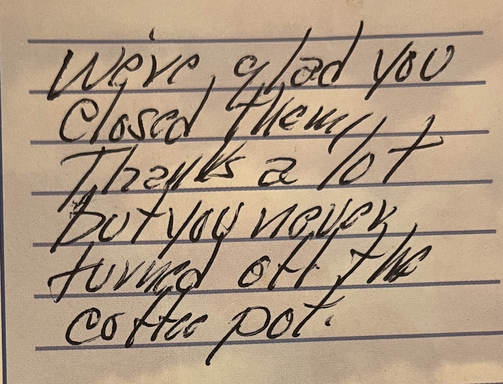 We're glad you
closed them,
Thanks a lot
but you never
turned off the
coffee pot.